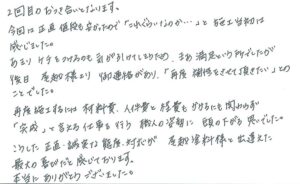 2回目のおつき合いとなります。
今回は正直値段も安かったので「これくらいなのか…」と施工当初は
感じました。
あまりケチをつけるのも気が引けてしまうため、まあ満足という所でしたが
後日 尾越様より御連絡があり、「再度補修をさせて頂きたい」との
ことでした。
再度施工するには材料費、人件費と経費もかかるにも関わらず
「完成」と言える仕事を行う職人の姿勢に頭の下がる思いでした。
こうした正直・誠実な態度、対応が 尾越塗料様と出逢えた
最大の喜びだと感じております。
本当にありがとうございました。